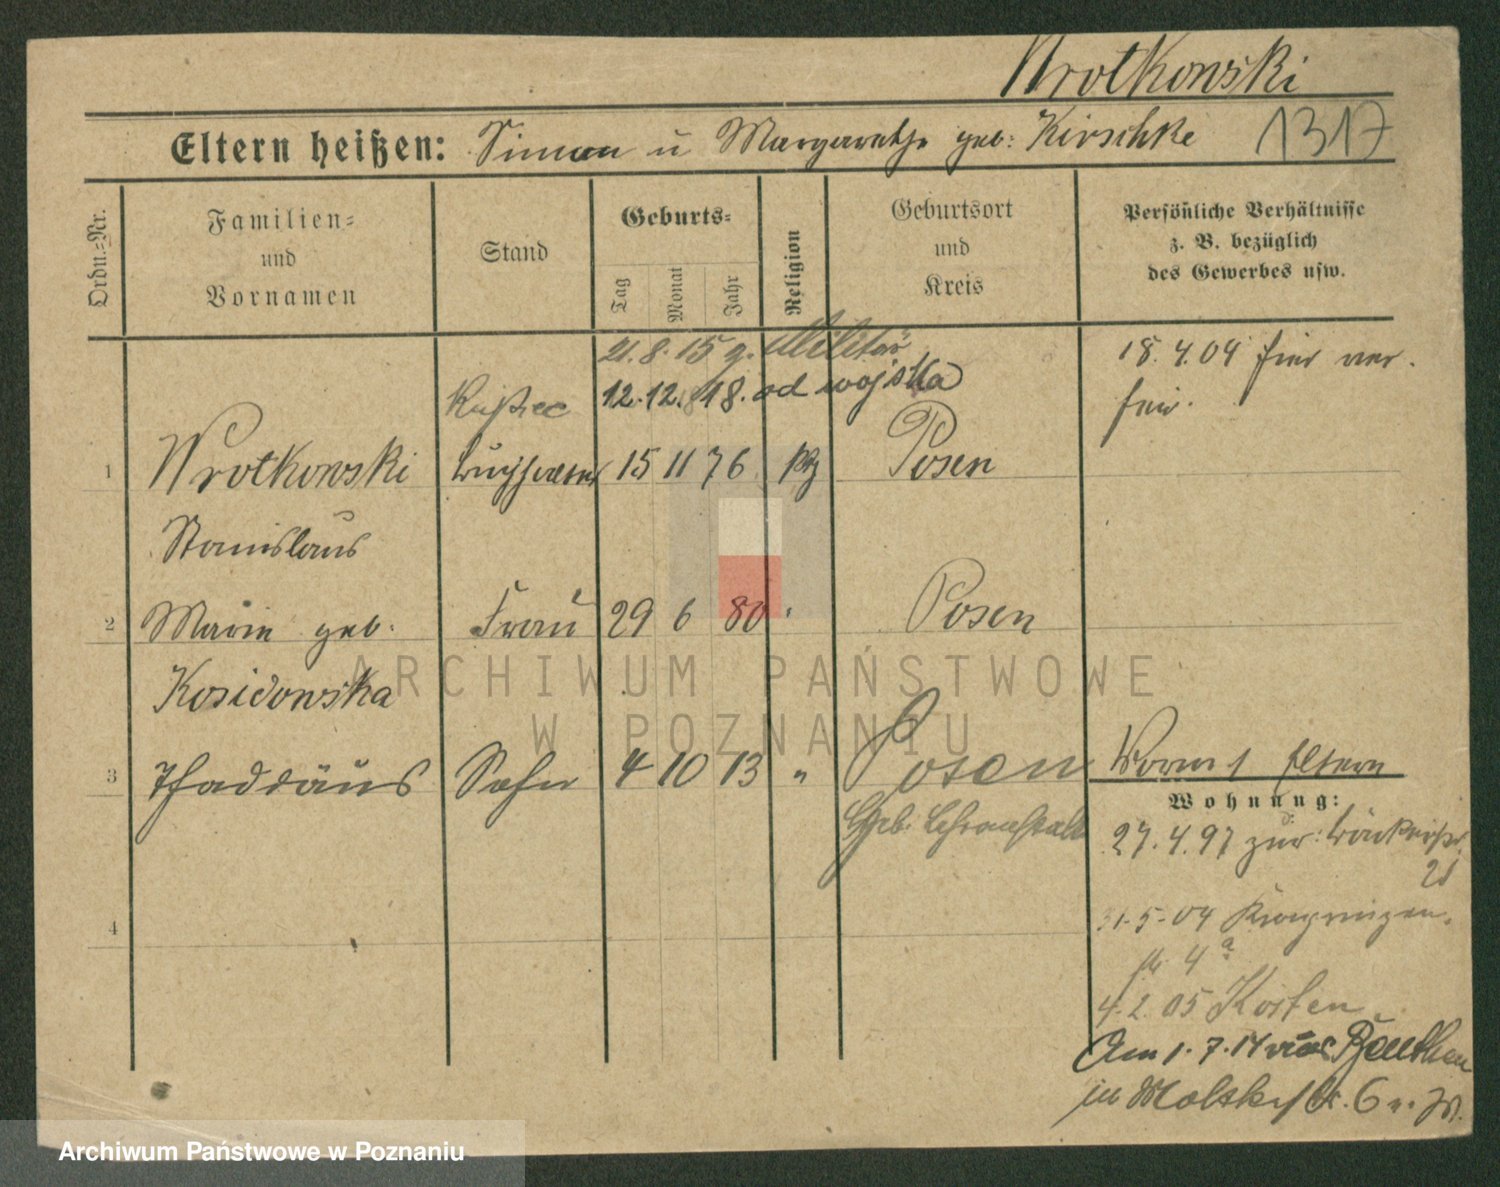 Wrotkowski
Eltern heißen: Simon u Margarethe geb: Kirschke 1317
Ordn.=Nr.
Familien=
und
Vornamen
Stand
Geburts=
Tag
Monat
Jahr
Religion
Geburtsort
und
Kreis
Persönliche Verhältnisse
z. B. bezüglich
des Gewerbes usw.
21. 8. 15 z. Militär
12. 12. 18. od wojska
18. 4. 04 hier ver.
1 Wrotkowski 15 11 76 kth Posen
Stanislaus
2 Marie geb. Frau 29 6 80 " Posen
Kosidowska
3 Thaddäus Sohn 4 10 13 " Posen
Geb. Lehranstalt
Worm. Eltern
Wohnung:
27. 4. 97 zur:
21
4
31. 5. 04
4a
4. 2. 05 Kosten
Am 1. 7. 14 Beuthen
in 6
ARCHIWUM PAŃSTWOWE
W POZNANIU
Archiwum Państwowe w Poznaniu